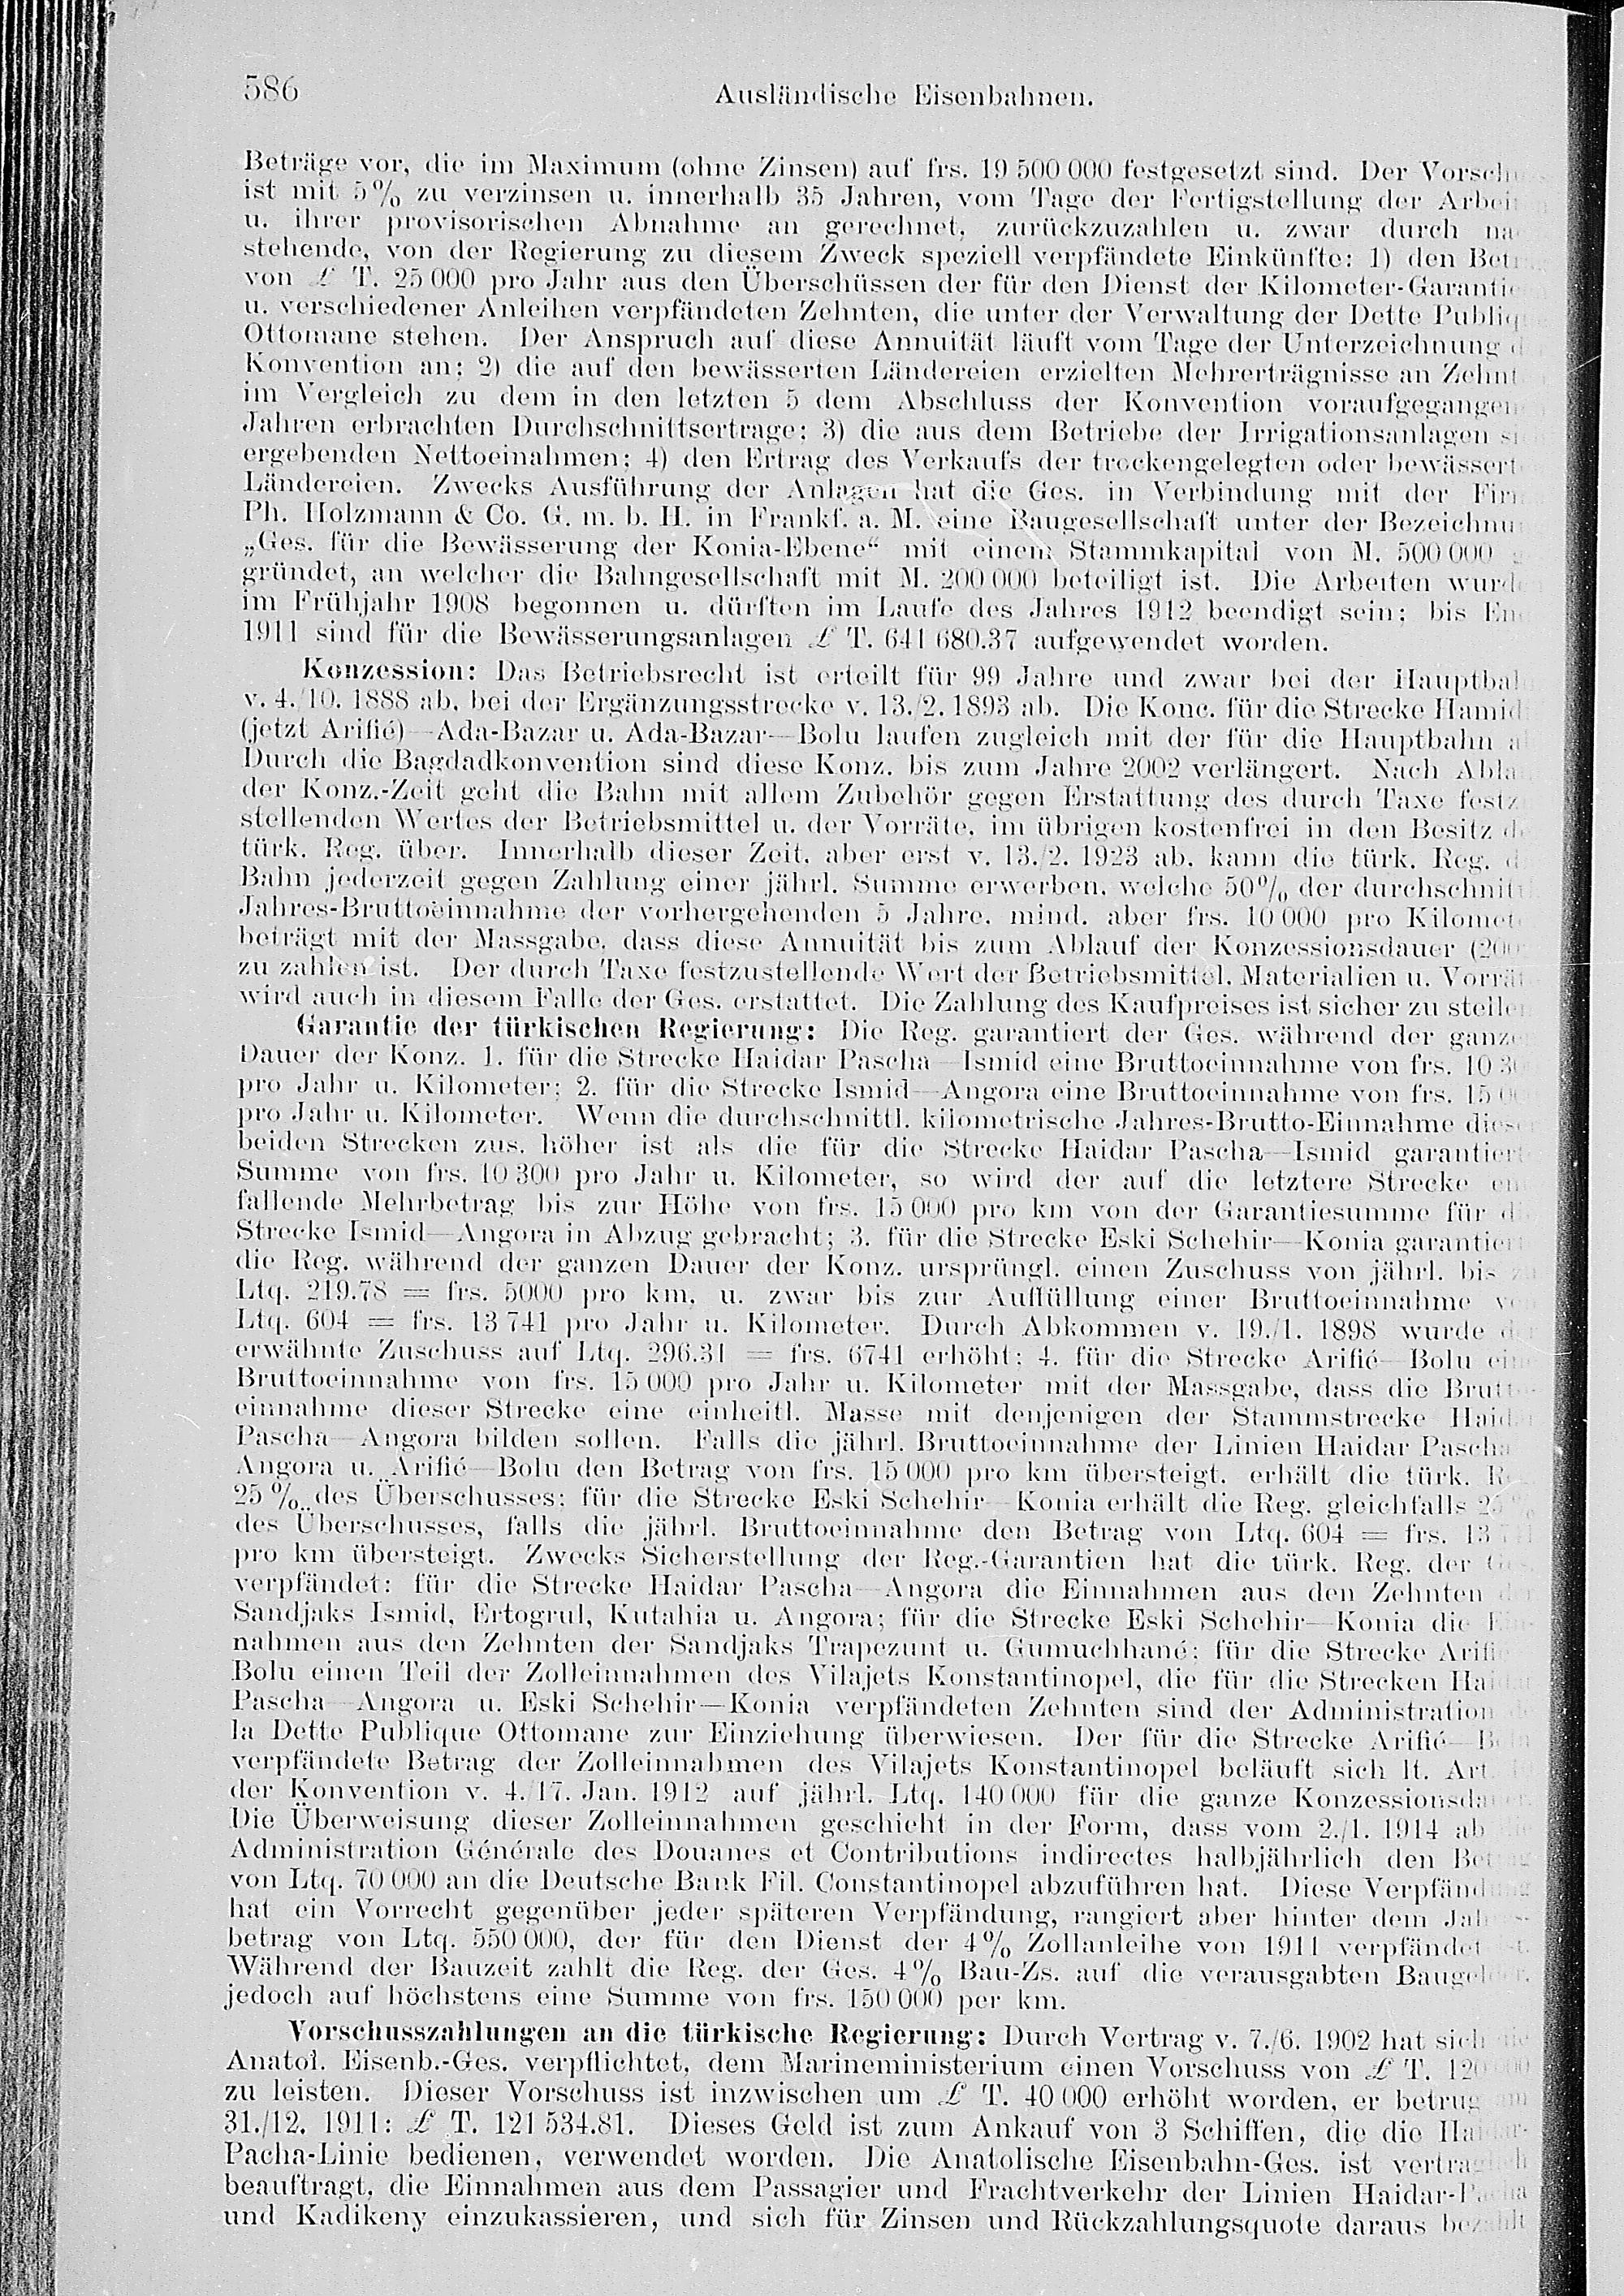 586
Ausländische Eisenbahnen.
Beträge vor, die im Maximum (ohne Zinsen) auf frs. 19 500 000 festgesetzt sind. Der
ist mit 5% zu verzinsen u. innerhalb 35 Jahren, vom Tage der Fertigstellung der
u. ihrer provisorischen Abnahme an gerechnet, zurückzuzahlen u. zwar durch
stehende, von der Regierung zu diesem Zweck speziell verpfändete Einkünfte: 1) den
von £ T. 25 000 pro Jahr aus den Überschüssen der für den Dienst der Kilometer-Garantie
u. verschiedener Anleihen verpfändeten Zehnten, die unter der Verwaltung der Dette
Ottomane stehen. Der Anspruch auf diese Annuität läuft vom Tage der Unterzeichnung
Konvention an; 2) die auf den bewässerten Ländereien erzielten Mehrerträgnisse an
im Vergleich zu dem in den letzten 5 dem Abschluss der Konvention
Jahren erbrachten Durchschnittsertrage; 3) die aus dem Betriebe der Irrigationsanlagen
ergebenden Nettoeinahmen; 4) den Ertrag des Verkaufs der trockengelegten oder
Ländereien. Zwecks Ausführung der Anlagen hat die Ges. in Verbindung mit der
Ph. Holzmann & Co. G. m. b. H. in Frankf. a. M. eine Baugesellschaft unter der
„Ges. für die Bewässerung der Konia-Ebene“ mit einem Stammkapital von M. 500 000
gründet, an welcher die Bahngesellschaft mit M. 200 000 beteiligt ist. Die Arbeiten
im Frühjahr 1908 begonnen u. dürften im Laufe des Jahres 1912 beendigt sein; bis
1911 sind für die Bewässerungsanlagen £ T. 641 680.37 aufgewendet worden.
Konzession: Das Betriebsrecht ist erteilt für 99 Jahre und zwar bei der
v. 4./10. 1888 ab, bei der Ergänzungsstrecke v. 13./2. 1893 ab. Die Konc. für die Strecke
(jetzt Arifié)—Ada-Bazar u. Ada-Bazar—Bolu laufen zugleich mit der für die Hauptbahn
Durch die Bagdadkonvention sind diese Konz. bis zum Jahre 2002 verlängert. Nach
der Konz.-Zeit geht die Bahn mit allem Zubehör gegen Erstattung des durch Taxe
stellenden Wertes der Betriebsmittel u. der Vorräte, im übrigen kostenfrei in den Besitz
türk. Reg. über. Innerhalb dieser Zeit, aber erst v. 13./2. 1923 ab, kann die türk. Reg.
Bahn jederzeit gegen Zahlung einer jährl. Summe erwerben, welche 50% der
Jahres-Bruttoeinnahme der vorhergehenden 5 Jahre, mind. aber frs. 10 000 pro
beträgt mit der Massgabe, dass diese Annuität bis zum Ablauf der Konzessionsdauer
zu zahlen ist. Der durch Taxe festzustellende Wert der Betriebsmittel, Materialien u.
wird auch in diesem Falle der Ges. erstattet. Die Zahlung des Kaufpreises ist sicher zu
Garantie der türkischen Regierung: Die Reg. garantiert der Ges. während der
Dauer der Konz. 1. für die Strecke Haidar Pascha—Ismid eine Bruttoeinnahme von frs.
pro Jahr u. Kilometer; 2. für die Strecke Ismid—Angora eine Bruttoeinnahme von frs.
pro Jahr u. Kilometer. Wenn die durchschnittl. kilometrische Jahres-Brutto-Einnahme
beiden Strecken zus. höher ist als die für die Strecke Haidar Pascha—Ismid
Summe von frs. 10 300 pro Jahr u. Kilometer, so wird der auf die letztere Strecke
fallende Mehrbetrag bis zur Höhe von frs. 15 000 pro km von der Garantiesumme für
Strecke Ismid—Angora in Abzug gebracht; 3. für die Strecke Eski Schehir—Konia garantiert
die Reg. während der ganzen Dauer der Konz. ursprüngl. einen Zuschuss von jährl. bis
Ltq. 219.78 = frs. 5000 pro km, u. zwar bis zur Auffüllung einer Bruttoeinnahme
Ltq. 604 = frs. 13 741 pro Jahr u. Kilometer. Durch Abkommen v. 19./1. 1898 wurde
erwähnte Zuschuss auf Ltq. 296.31 = frs. 6741 erhöht; 4. für die Strecke Arifié—Bolu
Bruttoeinnahme von frs. 15 000 pro Jahr u. Kilometer mit der Massgabe, dass die
einnahme dieser Strecke eine einheitl. Masse mit denjenigen der Stammstrecke
Pascha—Angora bilden sollen. Falls die jährl. Bruttoeinnahme der Linien Haidar Pascha
Angora u. Arifié—Bolu den Betrag von frs. 15 000 pro km übersteigt, erhält die türk.
25% des Überschusses; für die Strecke Eski Schehir—Konia erhält die Reg. gleichfalls
des Überschusses, falls die jährl. Bruttoeinnahme den Betrag von Ltq. 604 = frs.
pro km übersteigt. Zwecks Sicherstellung der Reg.-Garantien hat die türk. Reg. der
verpfändet: für die Strecke Haidar Pascha—Angora die Einnahmen aus den Zehnten
Sandjaks Ismid, Ertogrul, Kutahia u. Angora; für die Strecke Eski Schehir—Konia die
nahmen aus den Zehnten der Sandjaks Trapezunt u. Gumuchhané; für die Strecke
Bolu einen Teil der Zolleinnahmen des Vilajets Konstantinopel, die für die Strecken
Pascha—Angora u. Eski Schehir—Konia verpfändeten Zehnten sind der Administration
la Dette Publique Ottomane zur Einziehung überwiesen. Der für die Strecke Arifié—
verpfändete Betrag der Zolleinnahmen des Vilajets Konstantinopel beläuft sich lt. Art.
der Konvention v. 4./17. Jan. 1912 auf jährl. Ltq. 140 000 für die ganze
Die Überweisung dieser Zolleinnahmen geschieht in der Form, dass vom 2./1. 1914 ab
Administration Générale des Douanes et Contributions indirectes halbjährlich den
von Ltq. 70 000 an die Deutsche Bank Fil. Constantinopel abzuführen hat. Diese
hat ein Vorrecht gegenüber jeder späteren Verpfändung, rangiert aber hinter dem
betrag von Ltq. 550 000, der für den Dienst der 4% Zollanleihe von 1911 verpfändet
Während der Bauzeit zahlt die Reg. der Ges. 4% Bau-Zs. auf die verausgabten
jedoch auf höchstens eine Summe von frs. 150 000 per km.
Vorschusszahlungen an die türkische Regierung: Durch Vertrag v. 7./6. 1902 hat sich
Anatol. Eisenb.-Ges. verpflichtet, dem Marineministerium einen Vorschuss von £ T.
zu leisten. Dieser Vorschuss ist inzwischen um £ T. 40 000 erhöht worden, er betrug
31./12. 1911: £ T. 121 534.81. Dieses Geld ist zum Ankauf von 3 Schiffen, die die
Pacha-Linie bedienen, verwendet worden. Die Anatolische Eisenbahn-Ges. ist
beauftragt, die Einnahmen aus dem Passagier und Frachtverkehr der Linien
und Kadikeny einzukassieren, und sich für Zinsen und Rückzahlungsquote daraus